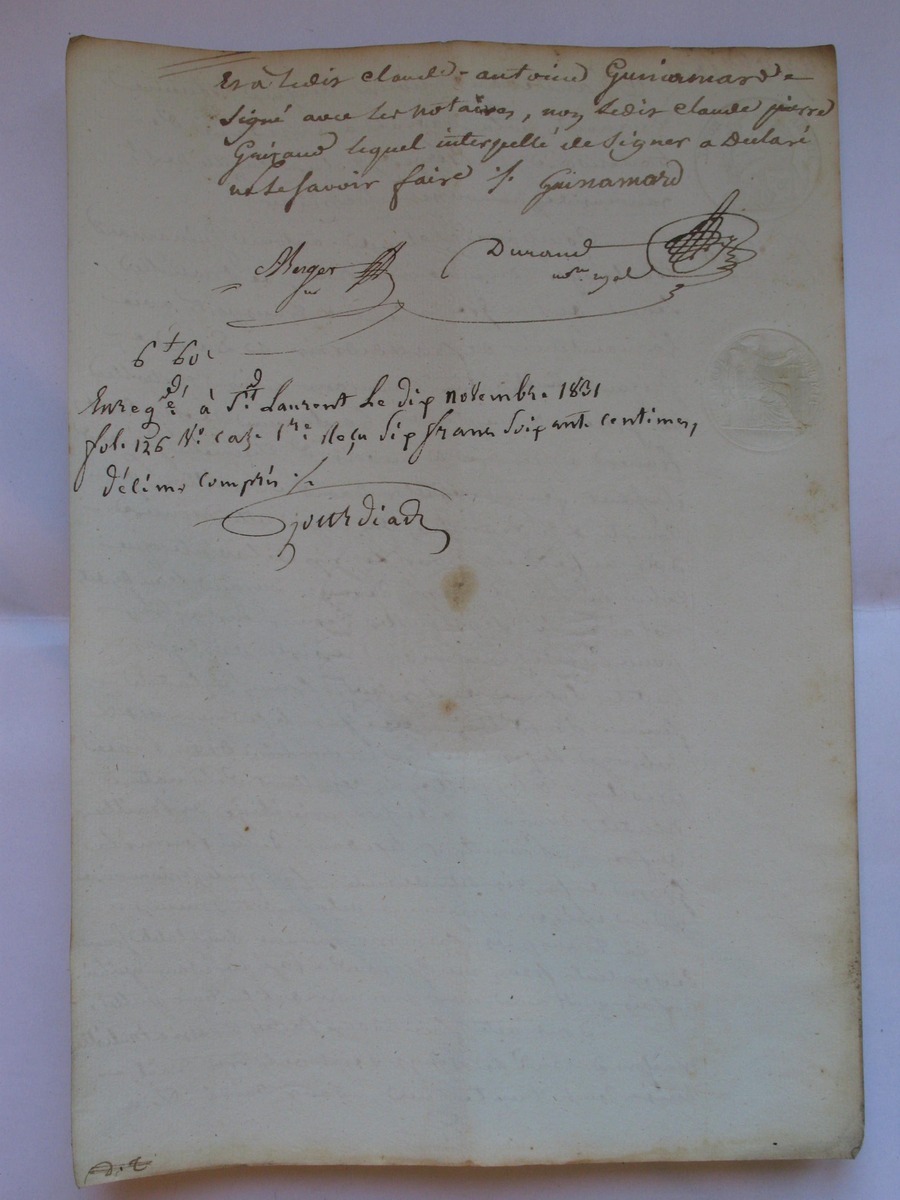 Et a ledit claude-antoine Guinamard
signé avec les notaires, non ledit claude pierre
lequel interpellé de signer a declaré
ne le savoir faire ./. Guinamard
Berger
nre
Durand
nore royal
6 f 60 c
Enregé à St Laurent Le dix novembre 1831
fol. 126 vo. caze 1re. Reçu six francs soixante centimes,
décime compris ./.